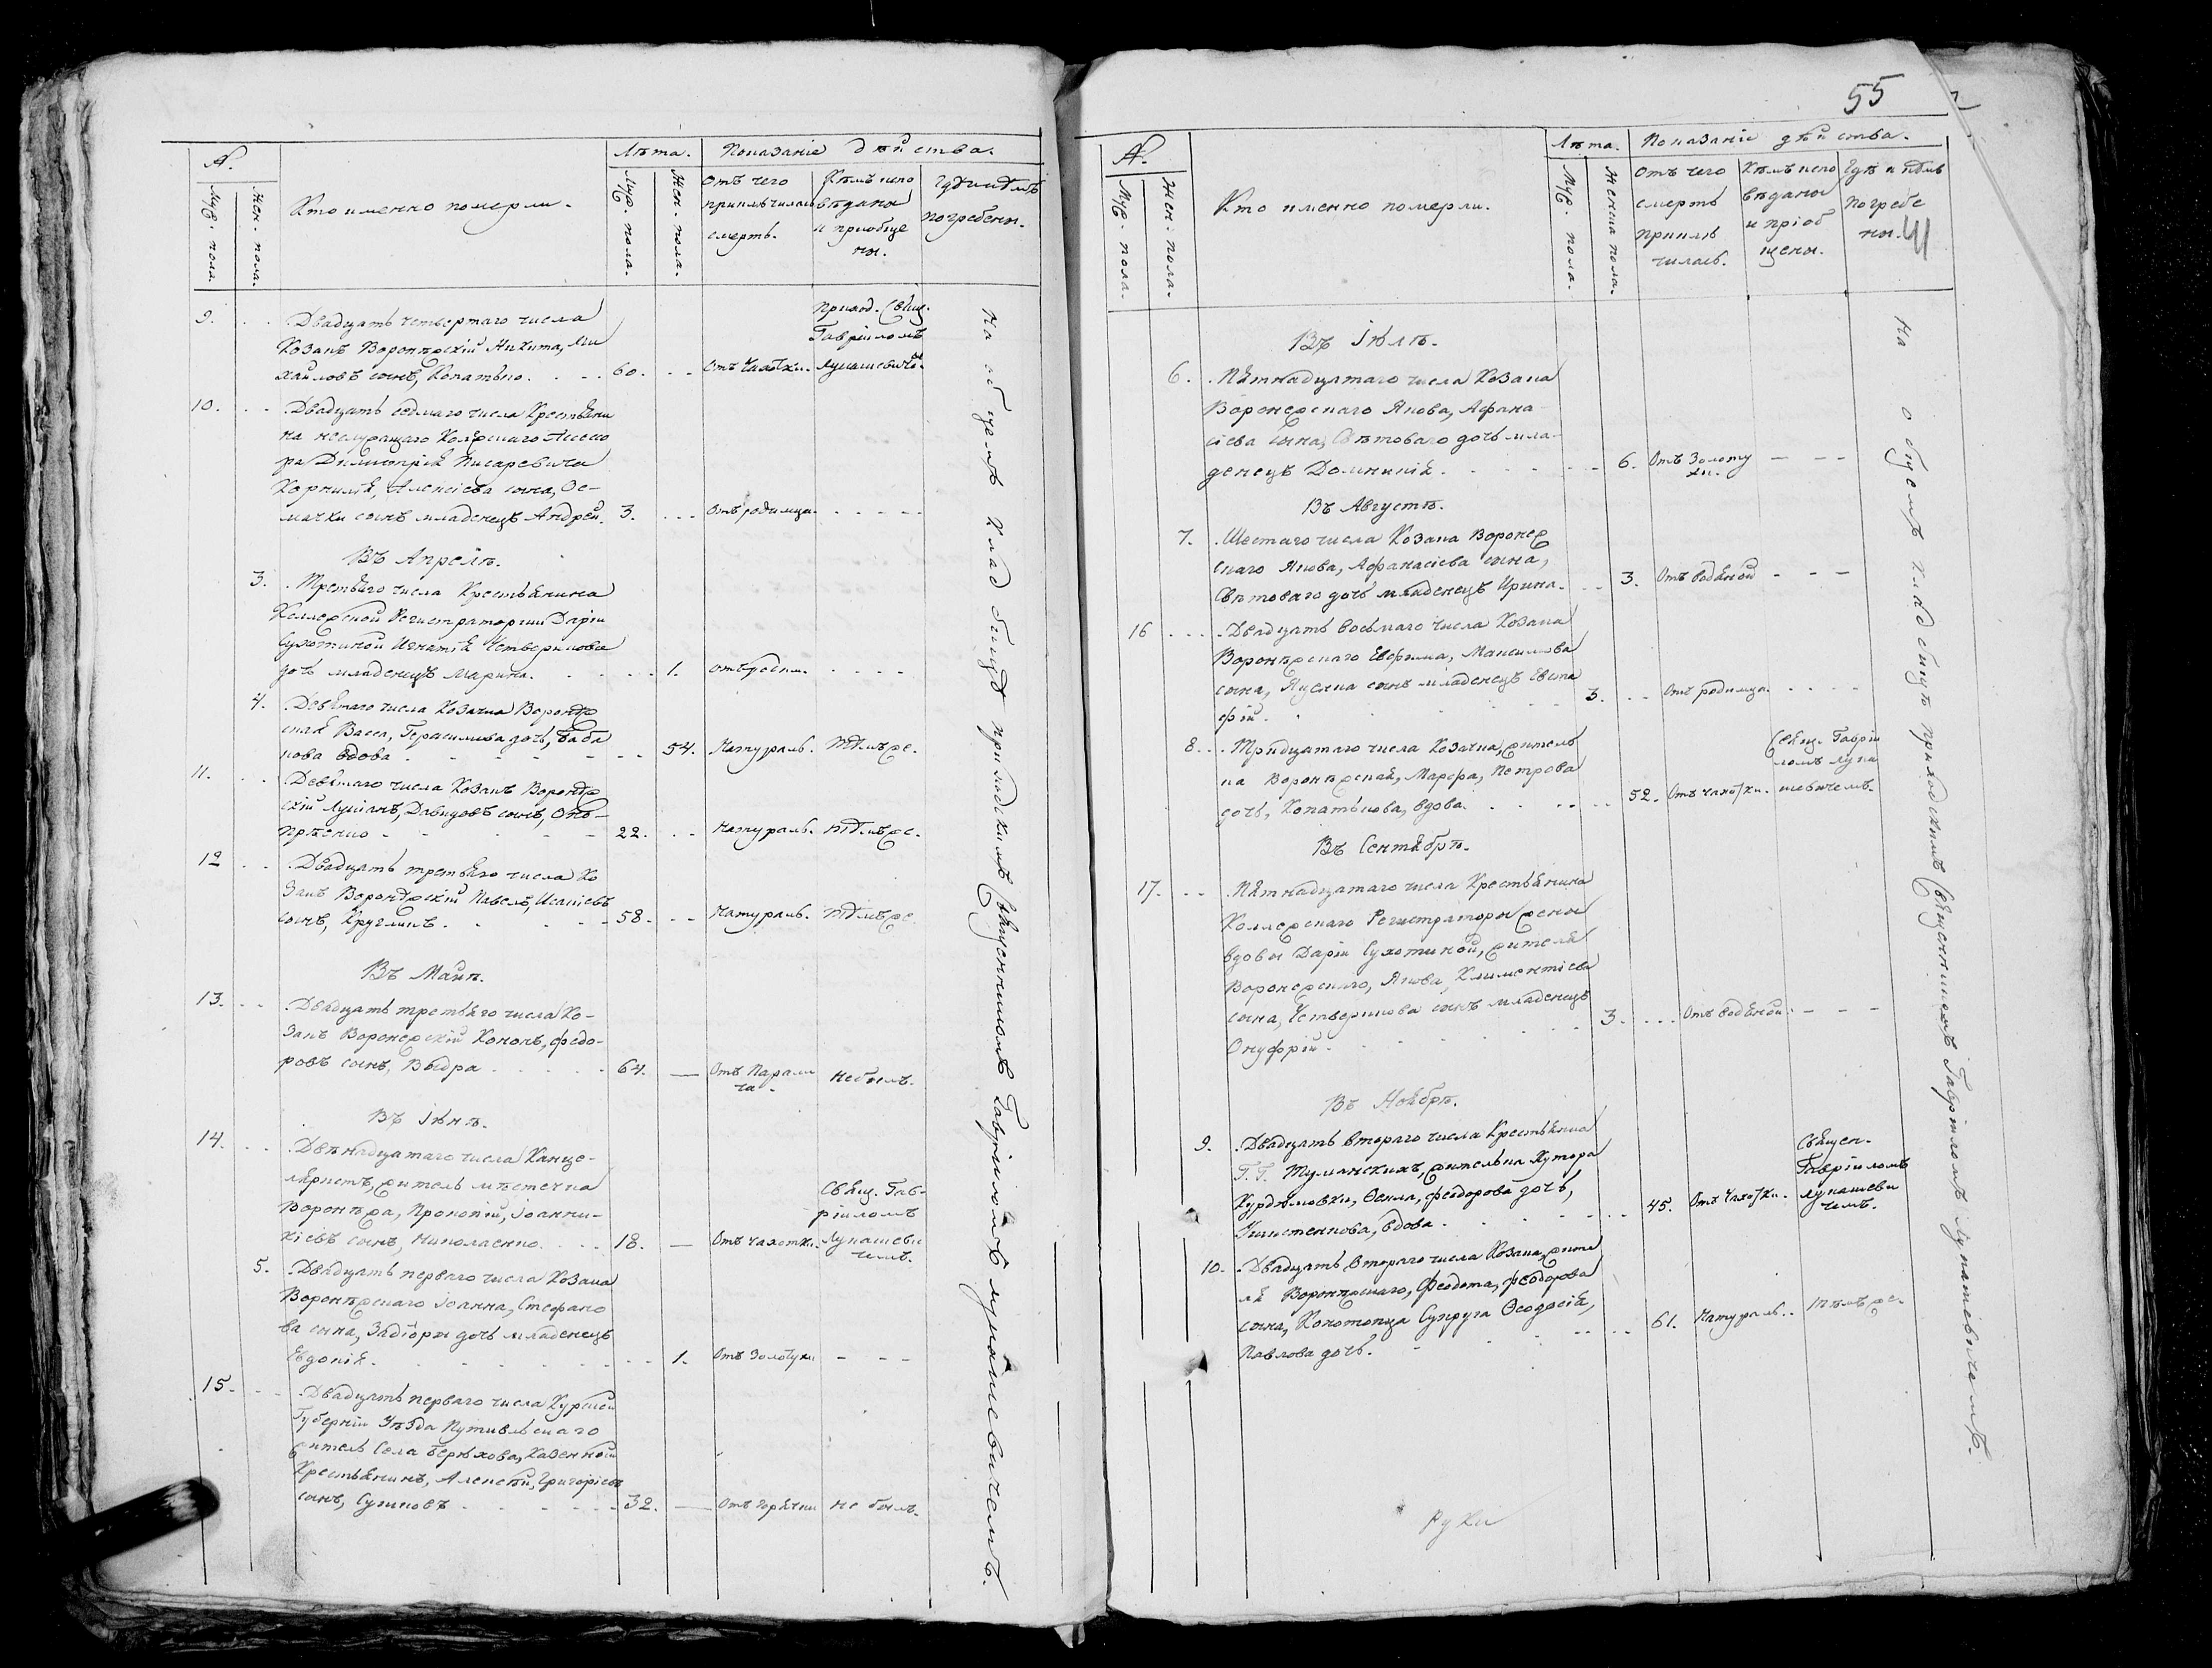 №.
Муж. пола.
Жен. пола.
Кто именно померли.
Лѣта.
Муж. пола.
Жен. пола.
Показаніе дѣйства.
Отъ чего
приключилась
смерть.
Кѣмъ исповѣданы
и пріобще
ны.
Гдѣ и кѣмъ
погребены.
9. Двадцать четвертаго числа
Козакъ Воронѣжскій Никита, Ми
хайловъ сынъ, Копатько. 60. Отъ чахотки.
Приход. Свящ.
Гавріиломъ
Лукашевичемъ.
10. Двадцать седмаго числа Крестьяни
на Ассесо
ра Димитрія Писаревича
Корнилія, Алексіева сына, Ос-
мачки сынъ младенецъ Андрей. 3. Отъ родимца.
Въ Апрелѣ.
3. Третьяго числа Крестьянина
Коллежской Регистраторши Даріи
Сухотиной Игнатія Четверикова
дочь младенецъ Марина. 1. отъ родим.
4. Девятаго числа Козачка Воронѣж
ская Васса, Герасимова дочь,
вдова 54. Натураль. тѣмъ же.
11. Девятаго числа Козакъ Воронѣж
скій Лукіанъ, Давидовъ сынъ,
22. Натураль. тѣмъ же.
12. Двадцать третьяго числа Ко
закъ Воронѣжскій Павелъ, Исаіевъ
сынъ, Кругликъ. 58. Натураль. тѣмъ же.
Въ Маіѣ.
13. Двадцать третьяго числа Ко-
закъ Воронежскій Кононъ, Федо-
ровъ сынъ, Выдра 64. Отъ Парали
ча. Не былъ.
Въ Іюнѣ.
14. Двѣнадцатаго числа Канце-
ляристъ, житель мѣстечка
Воронѣжа, Прокопій, Іоанни-
кіевъ сынъ, Николаенко. 18. Отъ чахотки.
Свящ. Гав-
ріиломъ
Лукашеви
чемъ.
5. Двадцать перваго числа Козака
Воронѣжскаго Іоанна, Стефано
ва сына, дочь младенецъ
Евдокія. 1. Отъ Золотухи
15. Двадцать перваго числа Курской
Губерніи Уѣзда Путивльскаго
житель Села Берюхова, Казенной
Крестьянинъ, Алексѣй, Григоріевъ
сынъ, 32. Отъ Горячки не былъ.
На общемъ кладбищѣ приходскимъ Священникомъ Гавріиломъ Лукашевичемъ.
55
№.
Муж. пола.
Жен. пола.
Кто именно померли.
Лѣта.
Муж. пола.
Женска пола.
Показаніе дѣйства.
Отъ чего
смерть
приклю
чилась.
Кѣмъ испо
вѣданы
и пріоб
щены.
Гдѣ и кѣмъ
погребе
ны.
Въ Іюлѣ.
6. Пятнадцатаго числа Козака
Воронежскаго Якова, Афана-
сіева сына, Свѣтоваго дочь мла-
денецъ Домникія. 6. Отъ Золоту
хи.
Въ Августѣ.
7. Шестаго числа Козака Воронеж
скаго Якова, Афанасіева сына,
Свѣтоваго дочь младенецъ Ирина. 3. Отъ водяной
16. Двадцать восьмаго числа Козака
Воронѣжскаго Евфима, Максимова
сына, сынъ младенецъ Евста
фій. 3. Отъ родимца.
8. Тридцатаго числа Козачка, житель
ка Воронѣжская, Марфа, Петрова
дочь, Копатькова, вдова. 52. Отъ чахотки.
Свящ. Гаврі
ломъ Лука
шевичемъ.
Въ Сентябрѣ.
17. Пятнадцатаго числа Крестьянина
Коллежскаго Регистратора жены
вдовы Даріи Сухотиной, жителя
Воронежскаго, Якова, Климентіева
сына, Четверикова сынъ младенецъ
Онуфрій. 3. Отъ водяной.
Въ Ноябрѣ.
9. Двадцать втораго числа Крестьянка
Г. Г. Туманскихъ, жителька Хутора
Курдюмовки, Фекла, Феодорова дочь,
вдова. 45. Отъ чахотки.
Священ.
Гавріиломъ
Лукашеви
чемъ.
10. Двадцать втораго числа Козака, жите
ля Воронѣжскаго, Феодота, Феодорова
сына, Конотопца Супруга Феодосія,
Павлова дочь. 61. Натураль. тѣмъ же.
На общемъ кладбищѣ приходскимъ Священникомъ Гавріиломъ Лукашевичемъ.
Руки